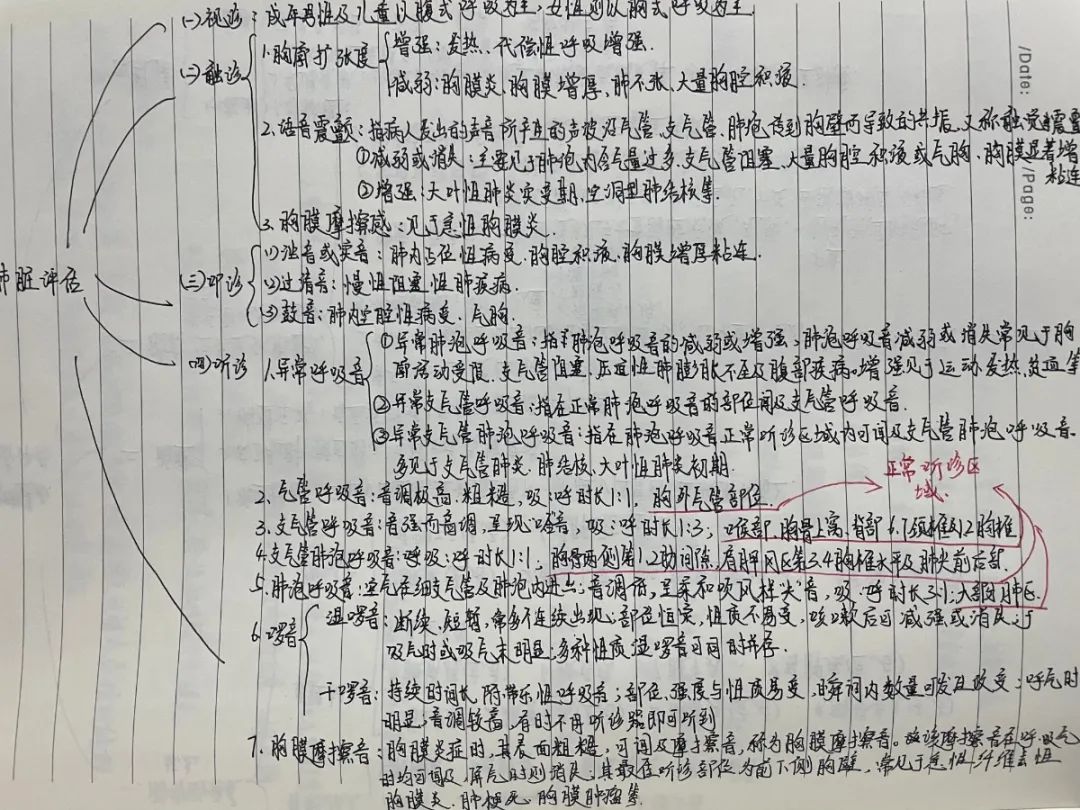 (一)视诊：成年男性及儿童以腹式呼吸为主，女性则以胸式呼吸为主
(二)触诊
1.胸廓扩张度
增强：发热、代偿性呼吸增强.
减弱：胸膜炎、胸膜增厚、肺不张、大量胸腔积液.
2.语音震颤：指病人发出的声音所产生的声波沿气管、支气管、肺泡传到胸壁而导致的共振，又称触觉震颤
①减弱或消失：主要见于肺泡内含气量过多、支气管阻塞、大量胸腔积液或气胸、胸膜显著增
粘连
②增强：大叶性肺炎实变期、空洞型肺结核等.
3.胸膜摩擦感：见于急性胸膜炎.
肺脏评估
(三)叩诊
(1)浊音或实音：肺内占位性病变、胸腔积液、胸膜增厚粘连.
(2)过清音：慢性阻塞性肺疾病.
(3)鼓音：肺内空腔性病变、气胸.
(四)听诊
1.异常呼吸音
①异常肺泡呼吸音：指肺泡呼吸音的减弱或增强，肺泡呼吸音减弱或消失常见于胸
廓活动受限、支气管阻塞、压迫性肺膨胀不全及腹部疾病.增强见于运动、发热、贫血等
②异常支气管呼吸音：指在正常肺泡呼吸音的部位闻及支气管呼吸音.
③异常支气管肺泡呼吸音：指在肺泡呼吸音正常听诊区域内可闻及支气管肺泡呼吸音.
多见于支气管肺炎、肺结核、大叶性肺炎初期.
正常听诊区
域.
2.气管呼吸音：音调极高、粗糙，吸：呼时长1:1，胸外气管部位.
3.支气管呼吸音：音强而高调，呈现"哈"音，吸：呼时长1:3；喉部、胸骨上窝、背部6.7颈椎、1.2胸椎
4.支气管肺泡呼吸音：呼吸：呼时长1:1，胸骨两侧第1.2肋间隙、肩胛冈区第3.4胸椎水平及肺尖前后部.
5.肺泡呼吸音：空气在细支气管及肺泡内进出；音调低，呈柔和吹风样"夫"音，吸：呼时长3:1；大部分肺区.
6.啰音
湿啰音：断续、短暂，常多个连续出现；部位恒定，性质不易变，咳嗽后可减强或消失；于
吸气时或吸气末明显；多种性质湿啰音可同时并存.
干啰音：持续时间长，附带乐性呼吸音；部位、强度与性质易变，瞬间内数量可发且改变；呼气时
明显；音调较高，有时不用听诊器即可听到
7.胸膜摩擦音：胸膜炎症时，其表面粗糙，可闻及摩擦音，称为胸膜摩擦音。故该摩擦音在呼吸气
时均可闻及，屏气时则消失，其最佳听诊部位为前下侧胸壁，常见于急性纤维素性
胸膜炎、肺梗死、胸膜肿瘤等.
/Date:
/Page: